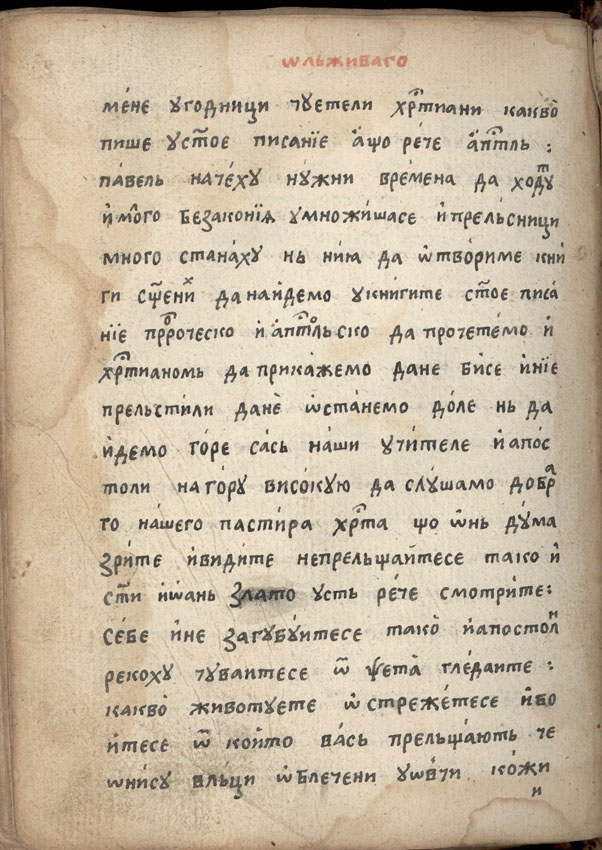 ѡ льживаго
ме́не угодници чуетели хрⷭ҇тиани какво̀
пише у ст҃ое писанїе а́що ре́че а҆пⷭ҇тль :
па́вель наче́ху ну́жни вре́мена да ходⷮу
и҆ мⷩо́го безаконїѧ умножи́шасе и҆ прельсници
много стана́ху нь ни́ꙗ да ѿтво́риме кни
ги сщ҃ениⷯ да найдемо у книгите ст҃ое писа́
нїе прⷪ҇роческо и҆ а҆пⷭ҇тольско да прочете́мо и҆
хрⷭ҇тианомь да прика́жемо да не би́се и҆ нїе
прельсти́ли да нѐ ѡ҆ста́немо до́ле нь да
и҆демо го́ре са́сь на́ши учи́теле и҆ апо́с
толи на го́ру висо́кую да слу́шамо добⷬа
то на́шего пасти́ра хрⷭ҇та що ѡ҆нь ду́ма
зри́те и҆ види́те непрельща́йтесе тако и҆
ст҃и и҆ѡ҆ань злато усть ре́че смотри́те :
се́бе и҆ не загубу́итесе тако̀ и҆ апостолⷩи
рекоху чува́итесе ѿ ѱета̀ гле́даите :
какво̀ животуете ѡ҆стреже́тесе и҆ бо
и҆тесе ѿ кои҆то ва́сь прельща́ють че
ѡнису вльци ѡ҆блечени у ѡ҆вчи ко́жи
и